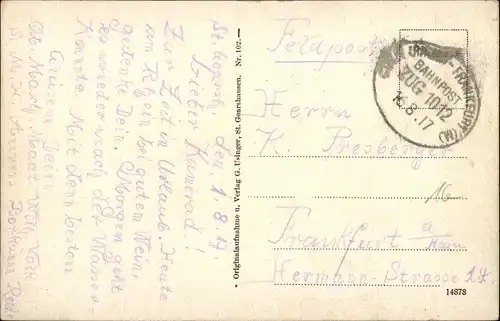 St. Goarsh. den, 1.8.17.
Lieber Kamerad!
Zur Zeit in Urlaub. Heute
am Rhein bei gutem Wein,
gedenke Dein. Morgen geht
es wieder nach der Wasser-
kante. Mit den besten
Grüssen Dein
Ob. Matr. Maat
S. M. S.
Originalaufnahme u. Verlag G. Usinger, St. Goarshausen. Nr. 102.
Feldpost
FRANKFURT (M)
BAHNPOST
ZUG 1012
8.17
Herrn
K. Presberger
Frankfurt a/Main
Hermann-Strasse 14.
14878